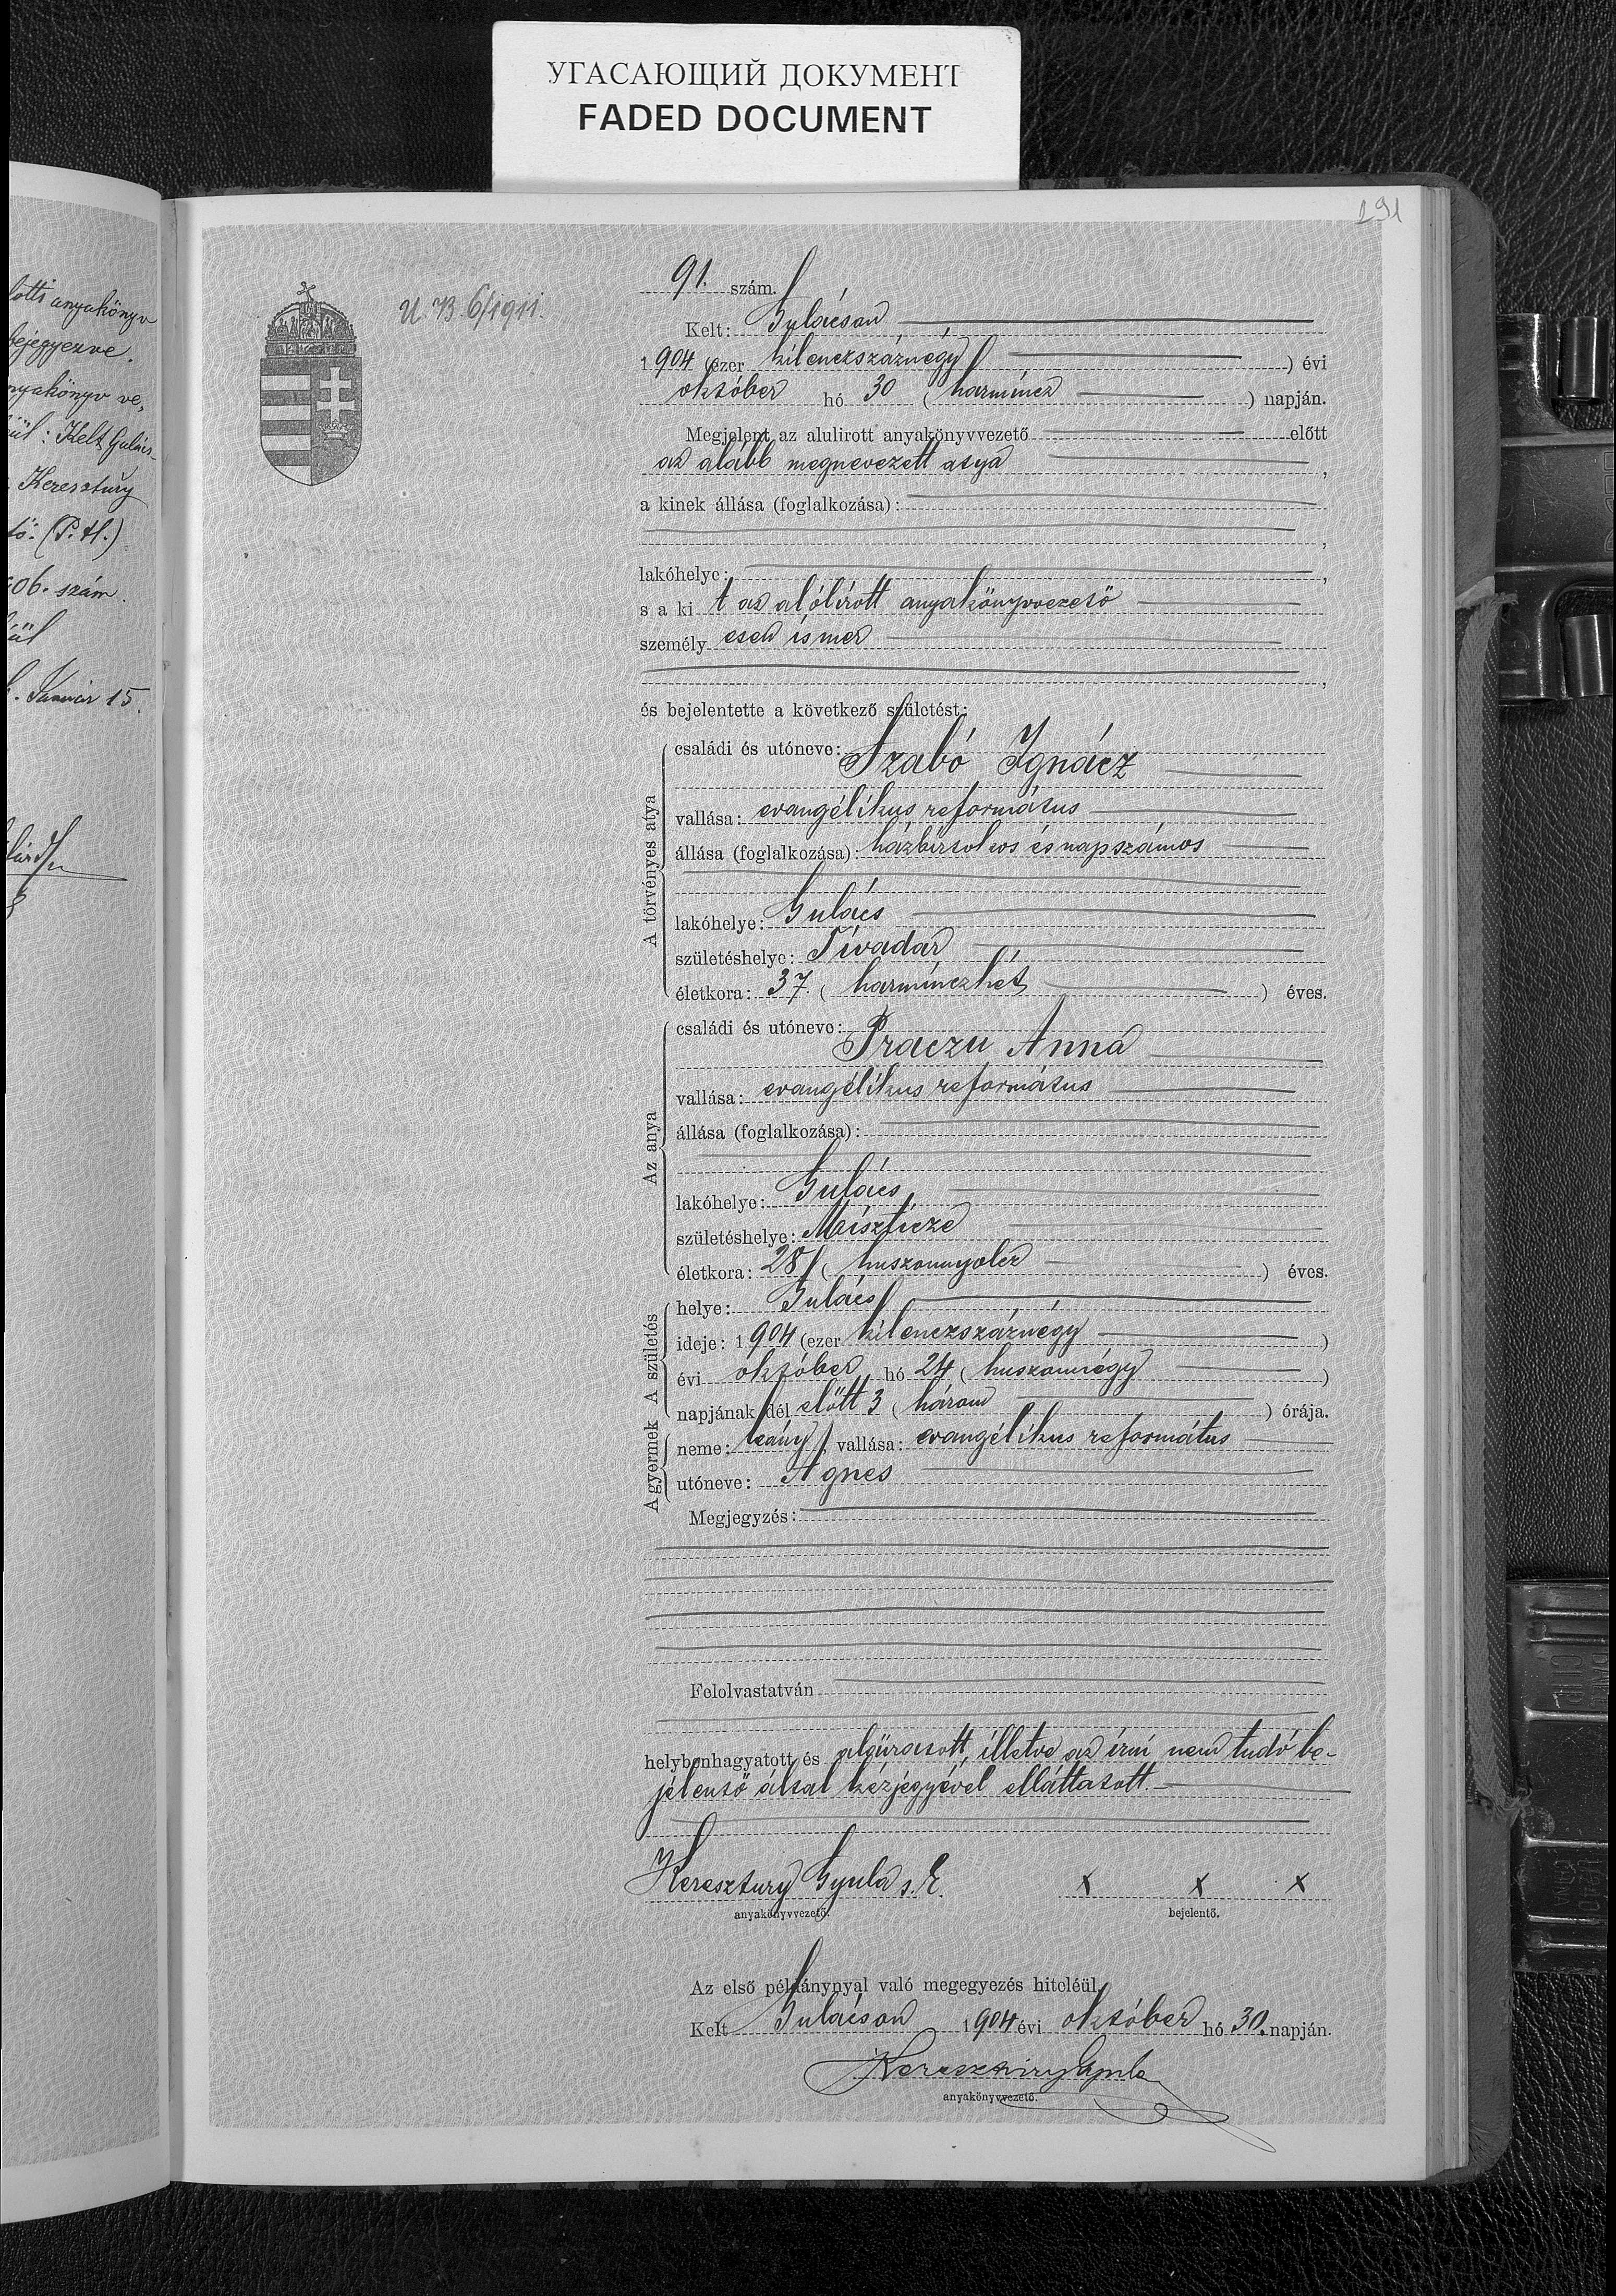 УГАСАЮЩИЙ ДОКУМЕНТ
FADED DOCUMENT
191
lotti anyakönyv
bejegyezve.
nyakönyv ve,
ül: Kelt Gulács-
Keresztury
tő: (P. H.)
906. szám.
ül
Január 15.
U. B. 6/1911.
91. szám.
Kelt: Gulácson
1904 (ezer kilenczszáznégy) évi
október hó 30 (harmincz) napján.
Megjelent az alulirott anyakönyvvezető előtt
az alább megnevezett atya,
a kinek állása (foglalkozása):
,
lakóhelye: ,
s a ki t az alólírott anyakönyvvezető
személyesen ismer
,
és bejelentette a következő születést:
A törvényes atya
családi és utóneve: Szabó Ignácz
vallása: evangélikus református
állása (foglalkozása): házbirtokos és napszámos
lakóhelye: Gulács
születéshelye: Tivadar
életkora: 37. (harminczhét) éves.
Az anya
családi és utóneve: Praczu Anna
vallása: evangélikus református
állása (foglalkozása):
lakóhelye: Gulács
születéshelye: Miszticze
életkora: 28 (huszonnyolcz) éves.
A születés
helye: Gulács
ideje: 1904 (ezer kilenczszáznégy)
évi október hó 24 (huszonnégy)
napjának dél előtt 3 (három) órája.
A gyermek
neme: leány, vallása: evangélikus református
utóneve: Ágnes
Megjegyzés:
Felolvastatván
helybenhagyatott és aláiratott, illetve az írni nem tudó be-
jelentő által kézjegyével elláttatott.
Keresztury Gyula s. k. x x x
anyakönyvvezető. bejelentő.
Az első példánynyal való megegyezés hiteléül.
Kelt Gulácson 1904 évi október hó 30. napján.
Keresztury Gyula
anyakönyvvezető.